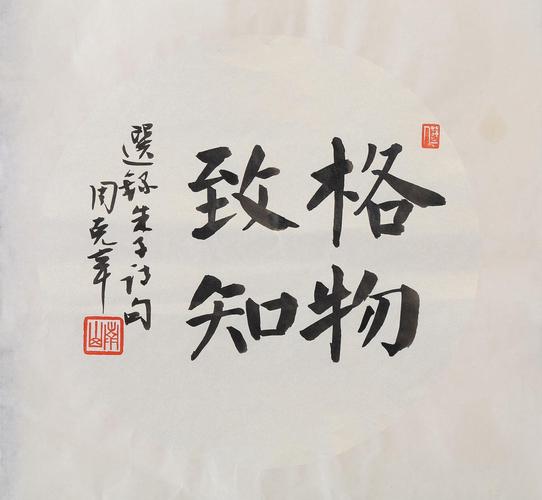 格物
致知
選錄朱子詩句
周克幸